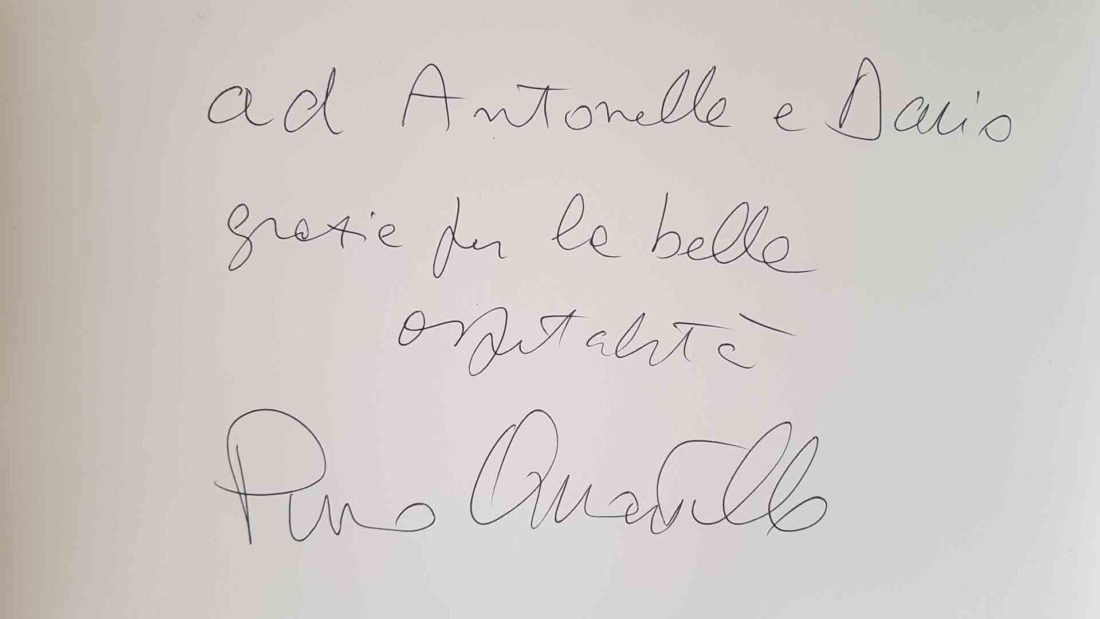 ad Antonella e Dario
grazie per la bella
ospitalità
Pino Quartullo